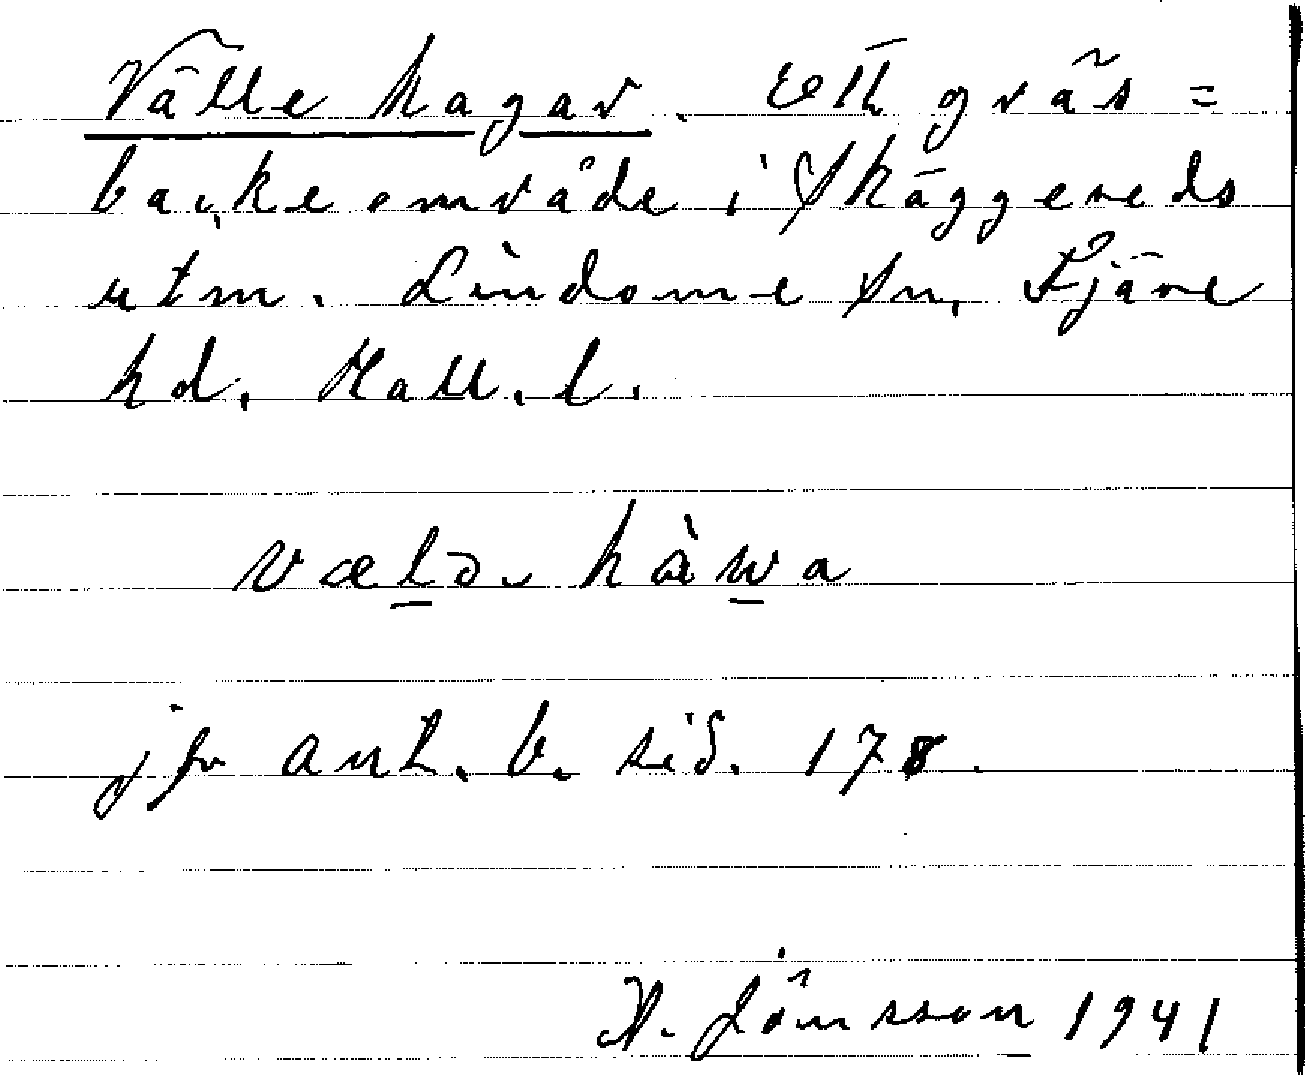 Välle hagar. Ett gräs=
backeområde i Skäggereds
utm. Lindome sn, Fjäre
hd, Hall. l.
vælə. hàwa
jfr ant. b. sid. 178.
A. Jönsson 1941